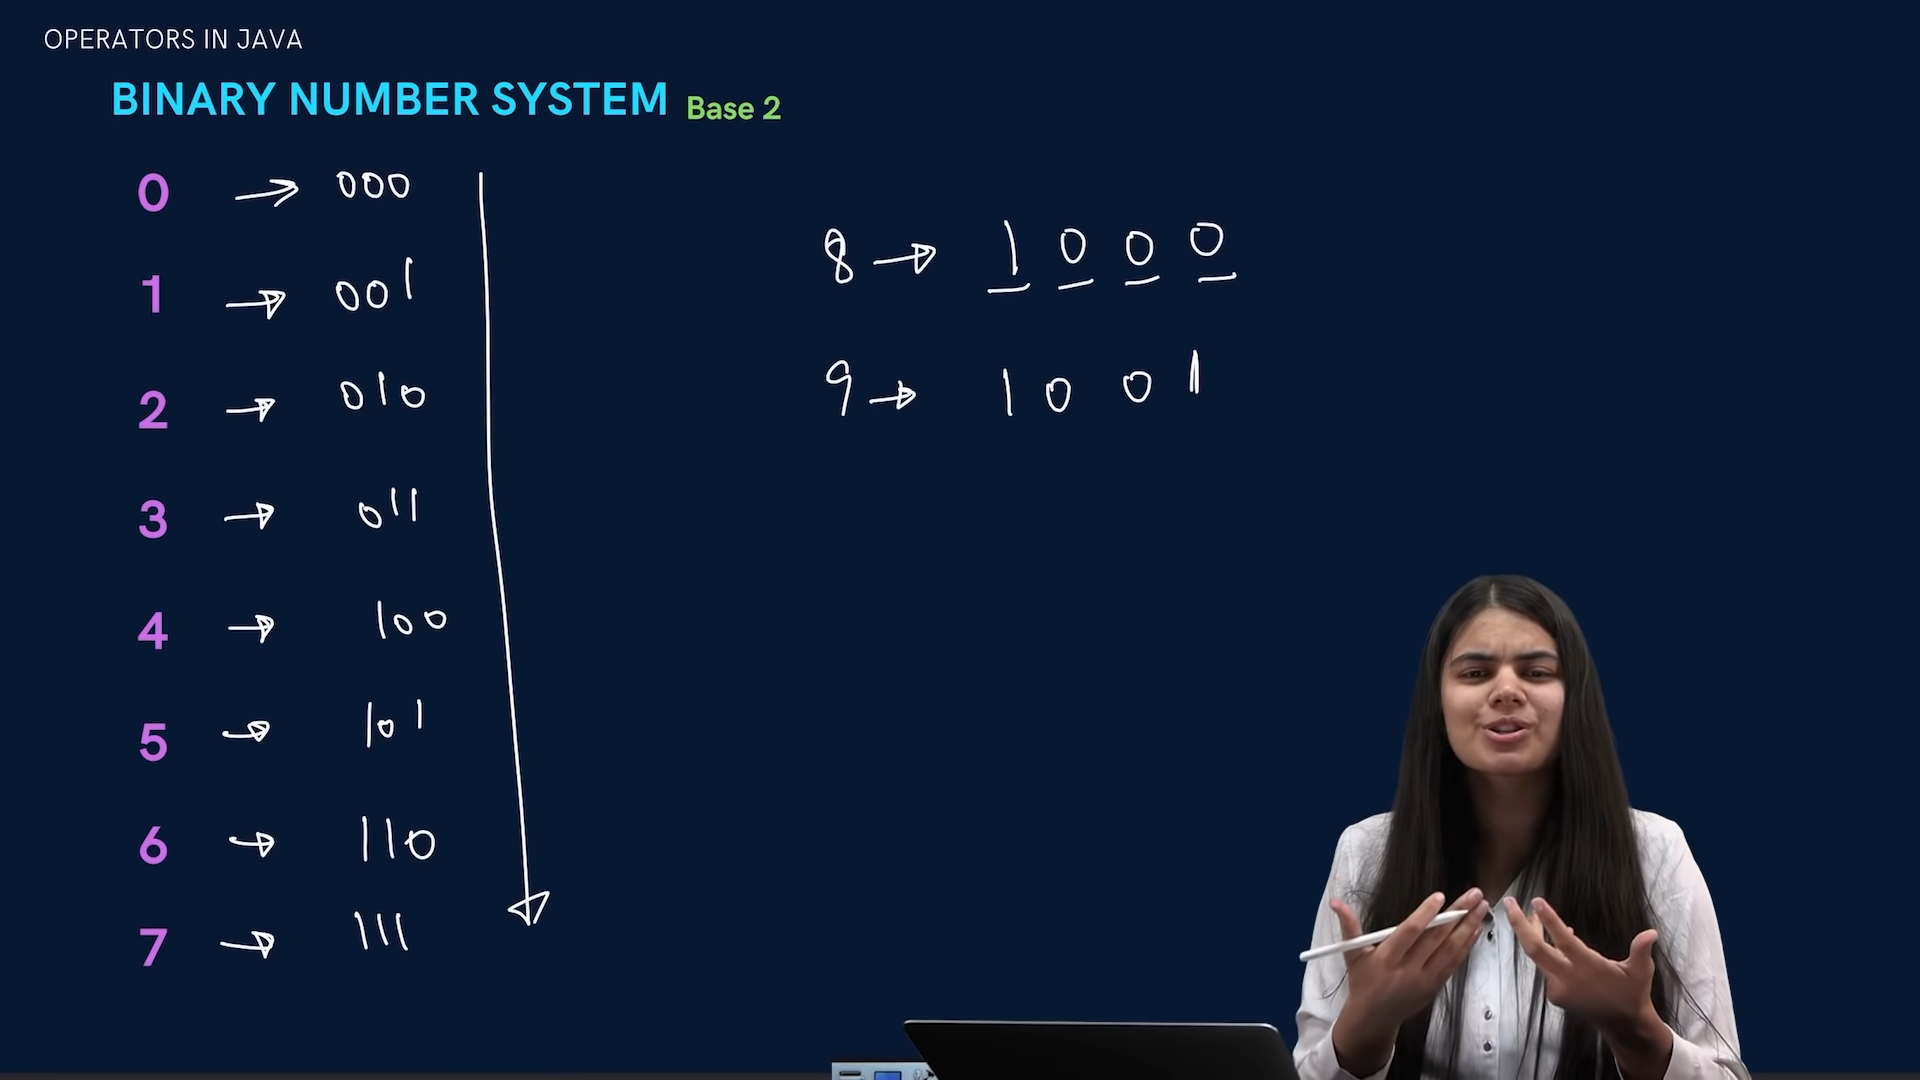 OPERATORS IN JAVA
BINARY NUMBER SYSTEM Base 2
0 → 000
1 → 001
2 → 010
3 → 011
4 → 100
5 → 101
6 → 110
7 → 111
8 → 1000
9 → 1001